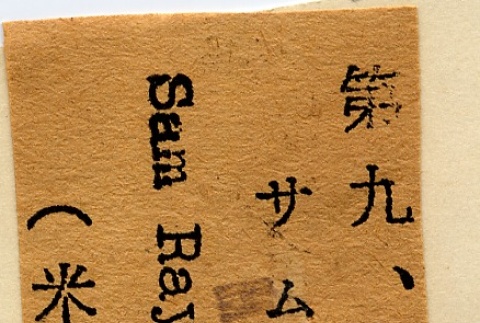 第九、
サム
Sam Ray
（米